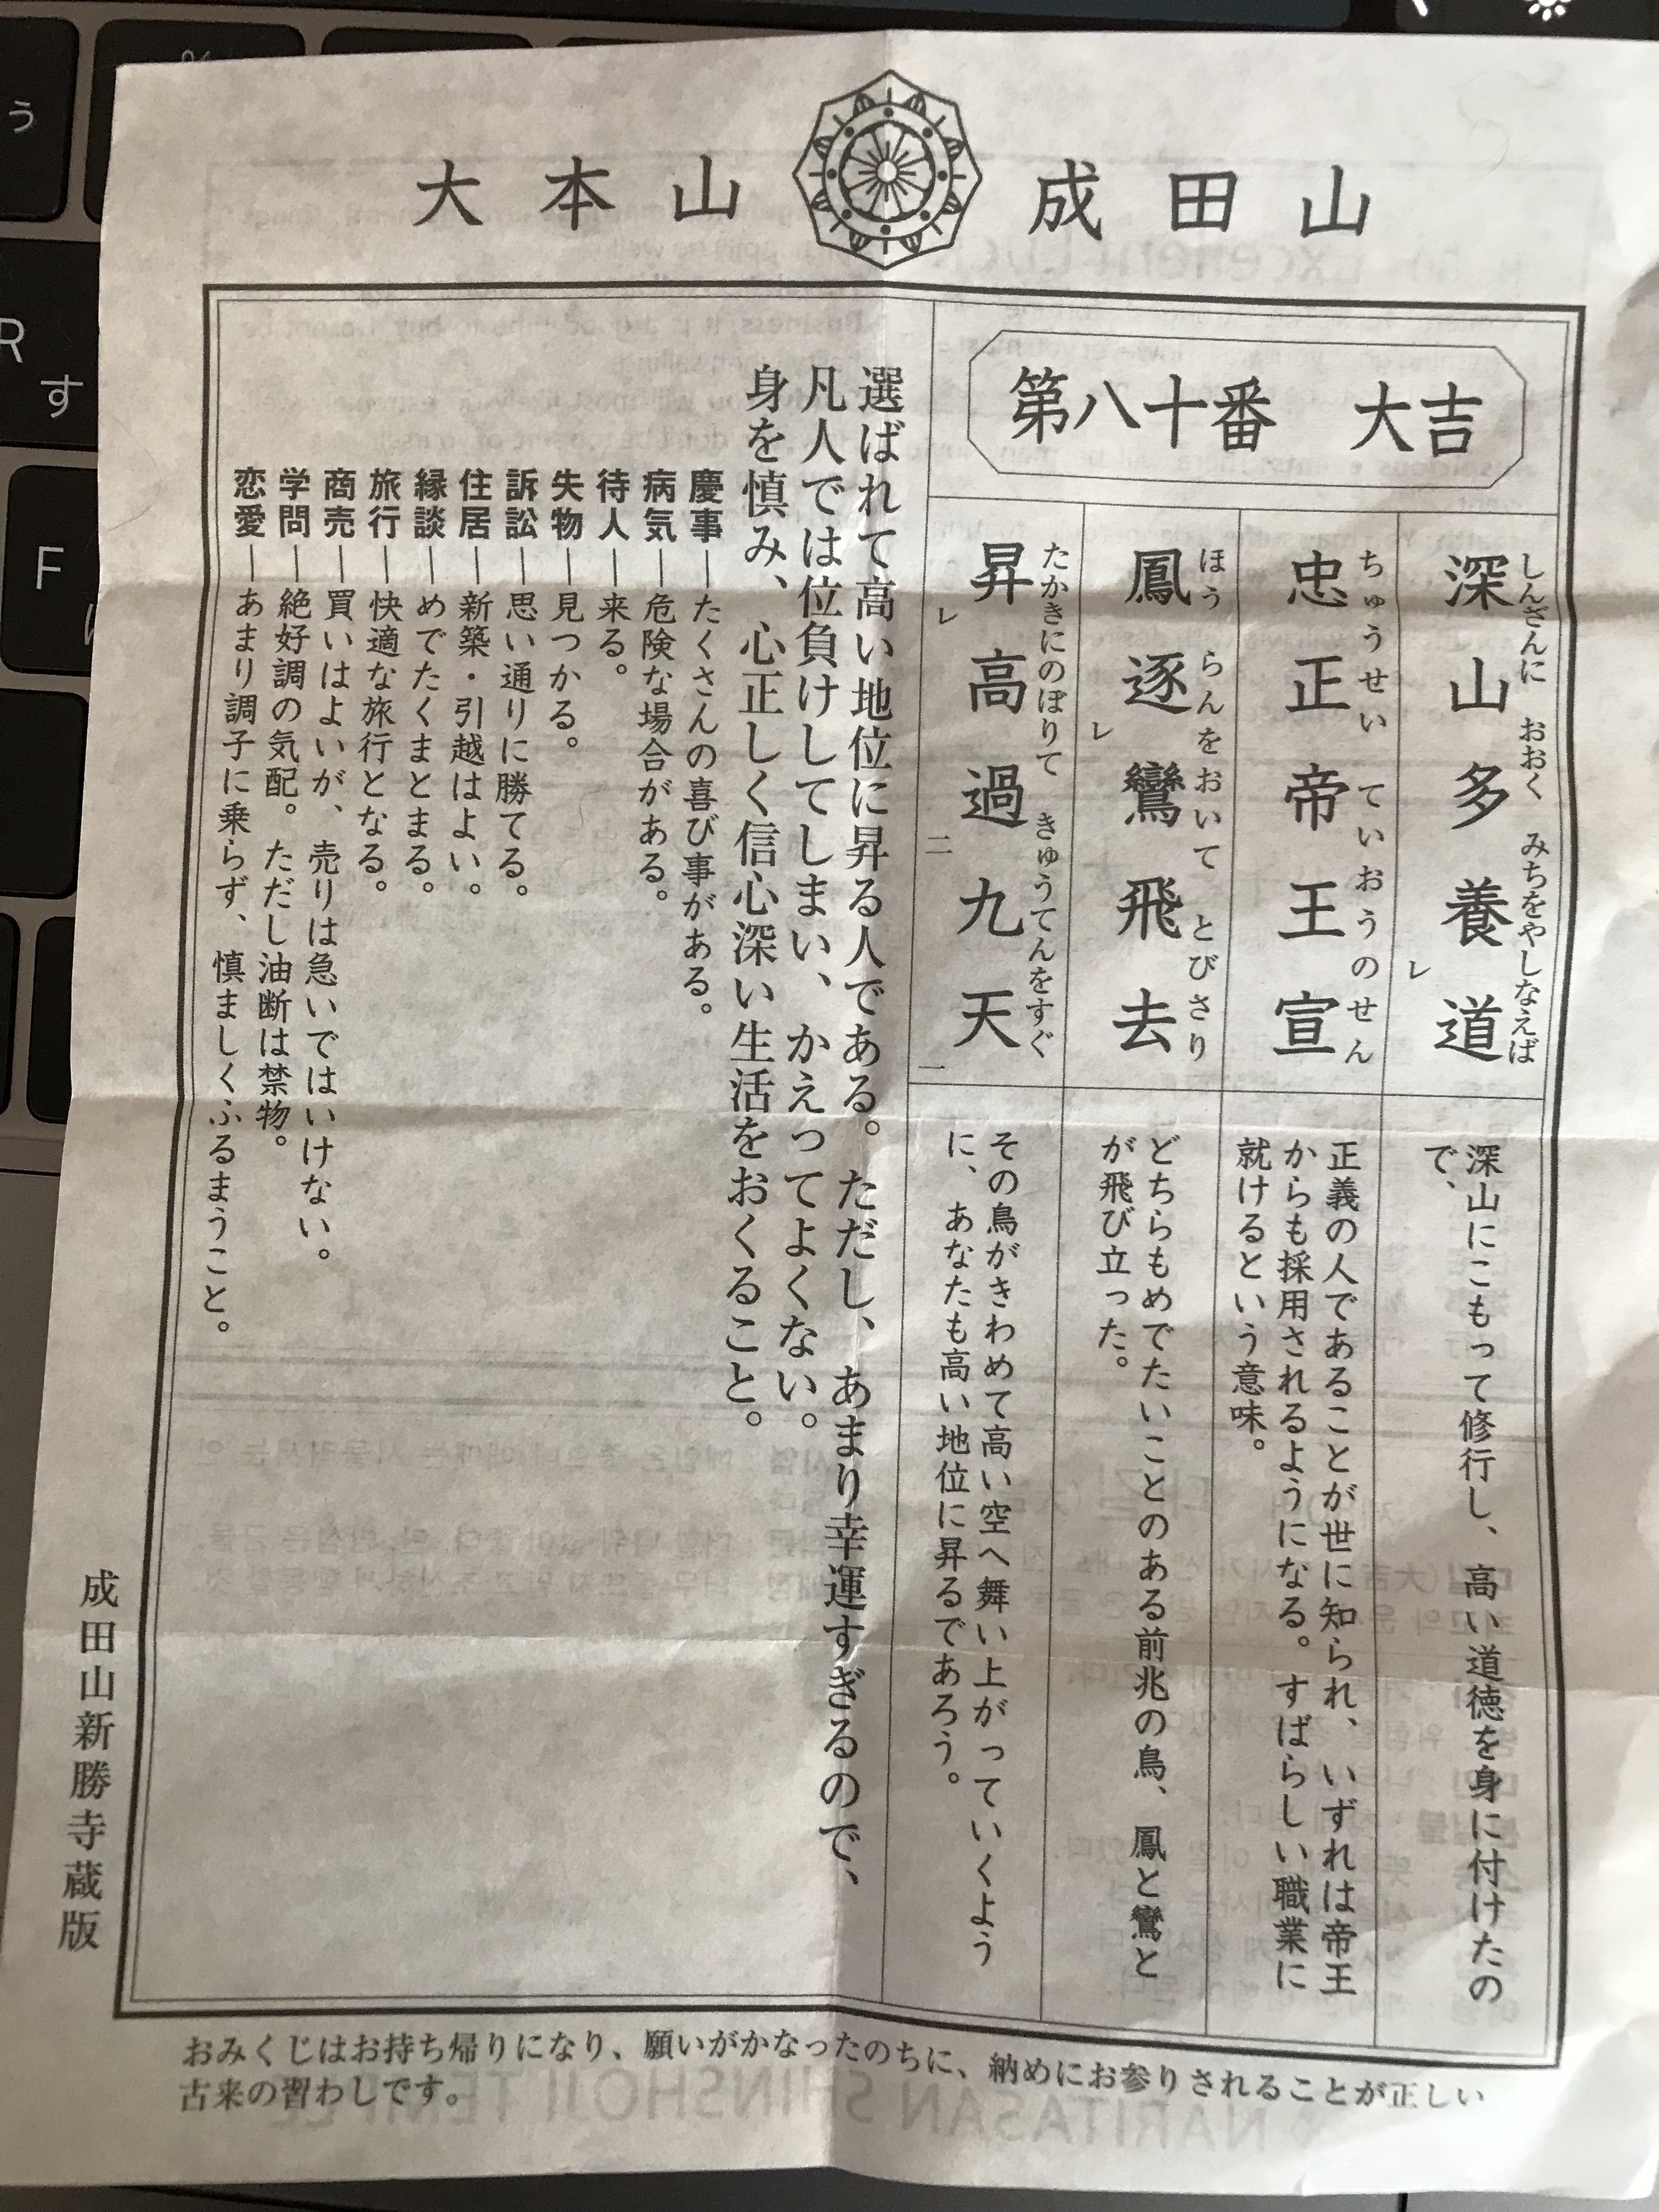 大本山 成田山
第八十番 大吉
しんざんに おおく みちをやしなえば
深山多養道
レ
深山にこもって修行し、高い道徳を身に付けたの
で、
ちゅうせい ていおうのせん
忠正帝王宣
正義の人であることが世に知られ、いずれは帝王
からも採用されるようになる。すばらしい職業に
就けるという意味。
ほう らんをおいて とびさり
鳳逐鸞飛去
レ
どちらもめでたいことのある前兆の鳥、鳳と鸞と
が飛び立った。
たかきにのぼりて きゅうてんをすぐ
昇高過九天
レ 二 一
その鳥がきわめて高い空へ舞い上がっていくよう
に、あなたも高い地位に昇るであろう。
選ばれて高い地位に昇る人である。ただし、あまり幸運すぎるので、
凡人では位負けしてしまい、かえってよくない。
身を慎み、心正しく信心深い生活をおくること。
慶事―たくさんの喜び事がある。
病気―危険な場合がある。
待人―来る。
失物―見つかる。
訴訟―思い通りに勝てる。
住居―新築・引越はよい。
縁談―めでたくまとまる。
旅行―快適な旅行となる。
商売―買いはよいが、売りは急いではいけない。
学問―絶好調の気配。ただし油断は禁物。
恋愛―あまり調子に乗らず、慎ましくふるまうこと。
成田山新勝寺蔵版
おみくじはお持ち帰りになり、願いがかなったのちに、納めにお参りされることが正しい
古来の習わしです。
う
R
す
F
%